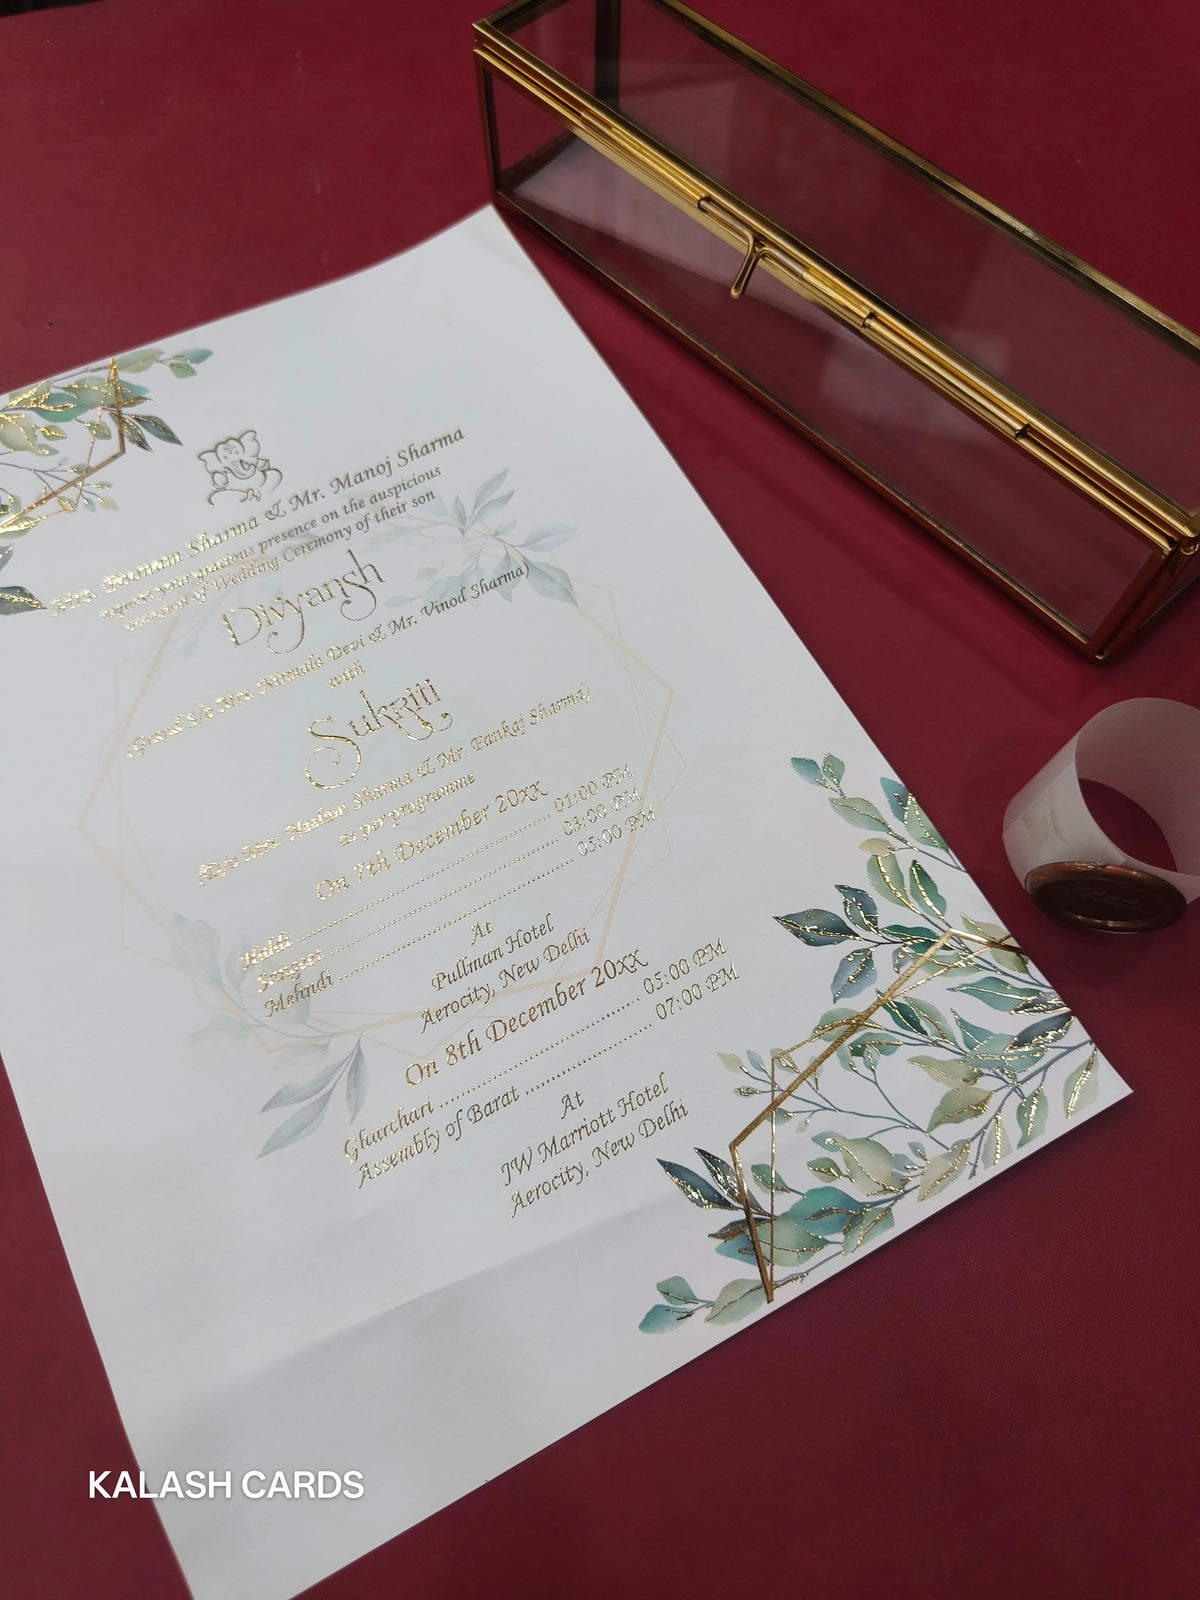 Mrs. Poonam Sharma & Mr. Manoj Sharma
request your gracious presence on the auspicious
occasion of Wedding Ceremony of their son
Divyansh
(Grand S/o Mrs. Nirmala Devi & Mr. Vinod Sharma)
with
Sukriti
(D/o Mrs. Neelam Sharma & Mr. Pankaj Sharma)
as per programme
On 7th December 20xx
Haldi ........................................ 01:00 PM
Sangeet ........................................ 03:00 PM
Mehndi ........................................ 05:00 PM
At
Pullman Hotel
Aerocity, New Delhi
On 8th December 20xx
Ghurchari ........................................ 05:00 PM
Assembly of Barat ......................... 07:00 PM
At
JW Marriott Hotel
Aerocity, New Delhi
KALASH CARDS